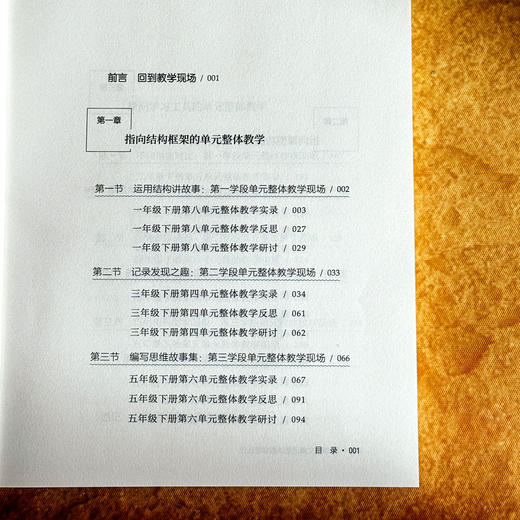 前言　回到教学现场 / 001
第一章
指向结构框架的单元整体教学
第一节　运用结构讲故事：第一学段单元整体教学现场 / 002
一年级下册第八单元整体教学实录 / 003
一年级下册第八单元整体教学反思 / 027
一年级下册第八单元整体教学研讨 / 029
第二节　记录发现之趣：第二学段单元整体教学现场 / 033
三年级下册第四单元整体教学实录 / 034
三年级下册第四单元整体教学反思 / 061
三年级下册第四单元整体教学研讨 / 062
第三节　编写思维故事集：第三学段单元整体教学现场 / 066
五年级下册第六单元整体教学实录 / 067
五年级下册第六单元整体教学反思 / 091
五年级下册第六单元整体教学研讨 / 094
目 录 · 001